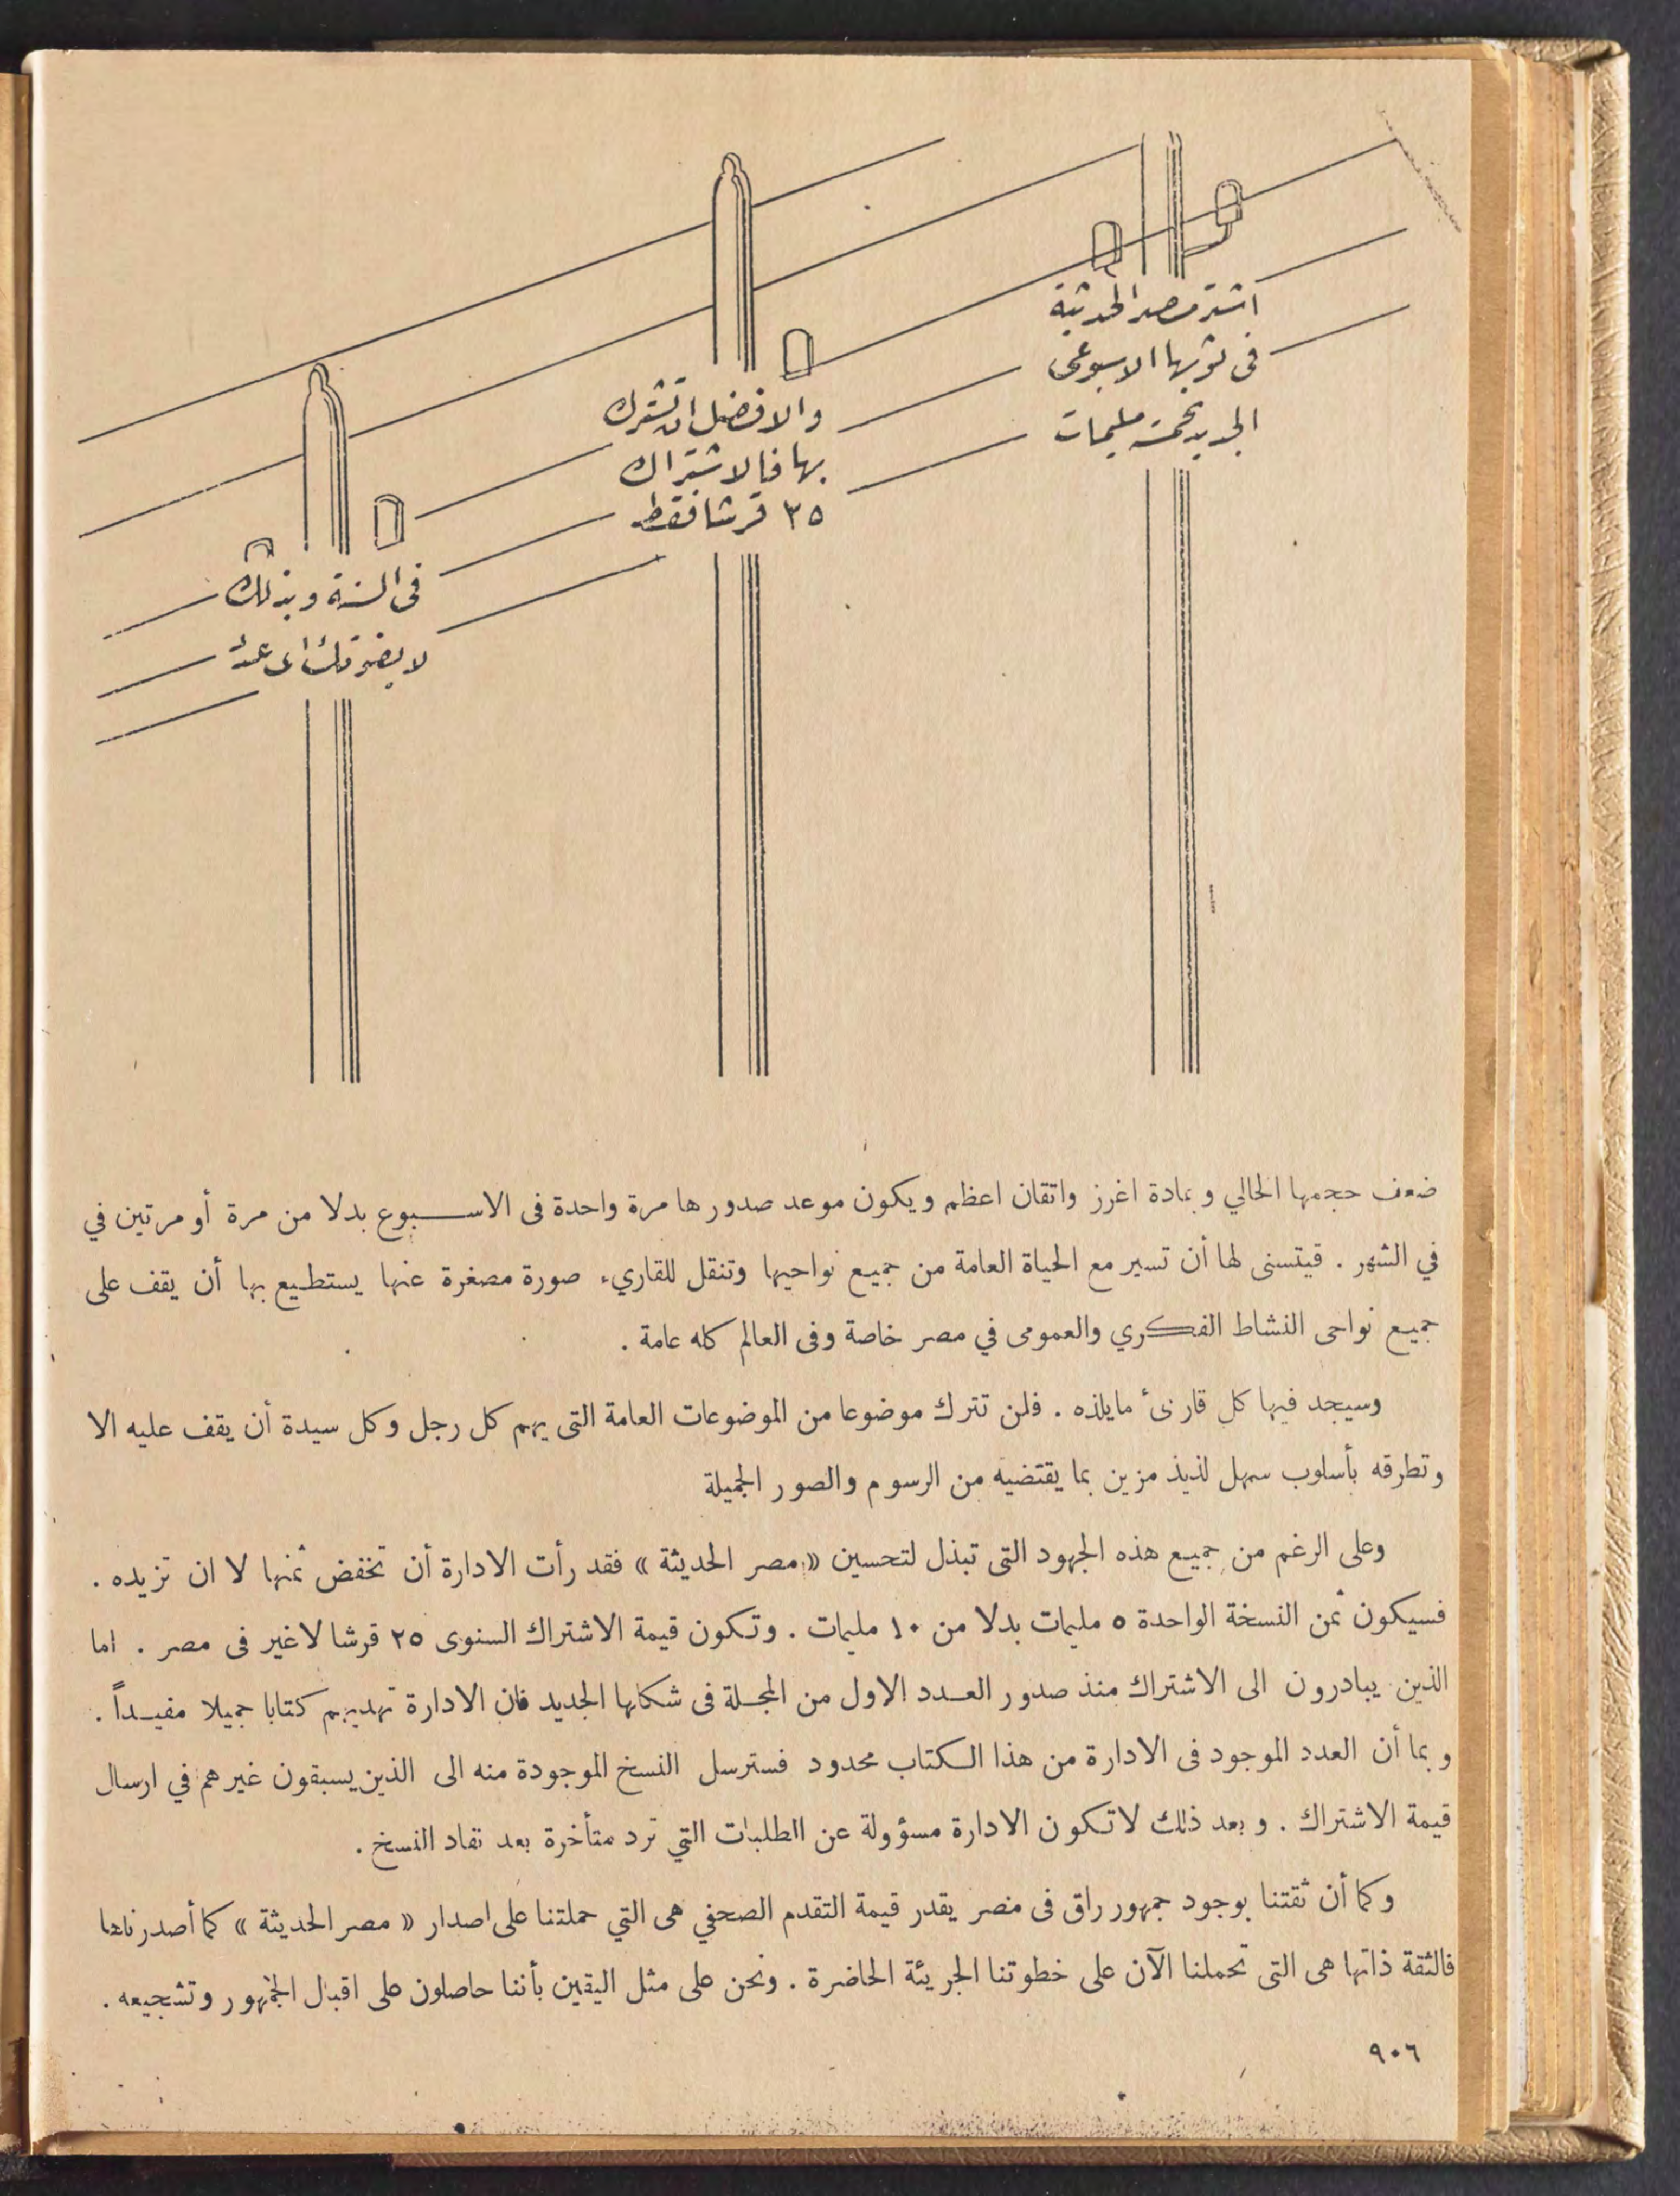 اشتر مصر الحديثة
فى ثوبها الاسبوعى
الجديد بخمسة مليمات
والافضل ان تشترك
بها فالاشتراك
٢٥ قرشا فقط
فى السنة وبذلك
لا يفوتك اى عدد
ضعف حجمها الحالي وبمادة اغرز واتقان اعظم ويكون موعد صدورها مرة واحدة فى الاســبوع بدلا من مرة أو مرتين في
في الشهر . فيتسنى لها أن تسير مع الحياة العامة من جميع نواحيها وتنقل للقاريء صورة مصغرة عنها يستطيع بها أن يقف على
جميع نواحى النشاط الفكري والعمومى في مصر خاصة وفى العالم كله عامة .
وسيجد فيها كل قارىٔ مايلذه . فلن تترك موضوعا من الموضوعات العامة التى يهم كل رجل وكل سيدة أن يقف عليه الا
وتطرقه بأسلوب سهل لذيذ مزين بما يقتضيه من الرسوم والصور الجميلة
وعلى الرغم من جميع هذه الجهود التى تبذل لتحسين « مصر الحديثة » فقد رأت الادارة أن تخفض ثمنها لا ان تزيده .
فسيكون ثمن النسخة الواحدة ٥ مليمات بدلا من ١٠ مليمات . وتكون قيمة الاشتراك السنوى ٢٥ قرشا لاغير فى مصر . اما
الذين يبادرون الى الاشتراك منذ صدور العدد الاول من المجلة فى شكلها الجديد فان الادارة تهديهم كتابا جميلا مفيداً .
وبما أن العدد الموجود فى الادارة من هذا الكتاب محدود فسترسل النسخ الموجودة منه الى الذين يسبقون غيرهم في ارسال
قيمة الاشتراك . وبعد ذلك لاتكون الادارة مسؤولة عن الطلبات التي ترد متأخرة بعد نفاد النسخ .
وكما أن ثقتنا بوجود جمهور راق فى مصر يقدر قيمة التقدم الصحفي هى التي حملتنا على اصدار « مصر الحديثة » كما أصدرناها
فالثقة ذاتها هى التى تحملنا الآن على خطوتنا الجريئة الحاضرة . ونحن على مثل اليقين بأننا حاصلون على اقبال الجمهور وتشجيعه .
٩٠٦